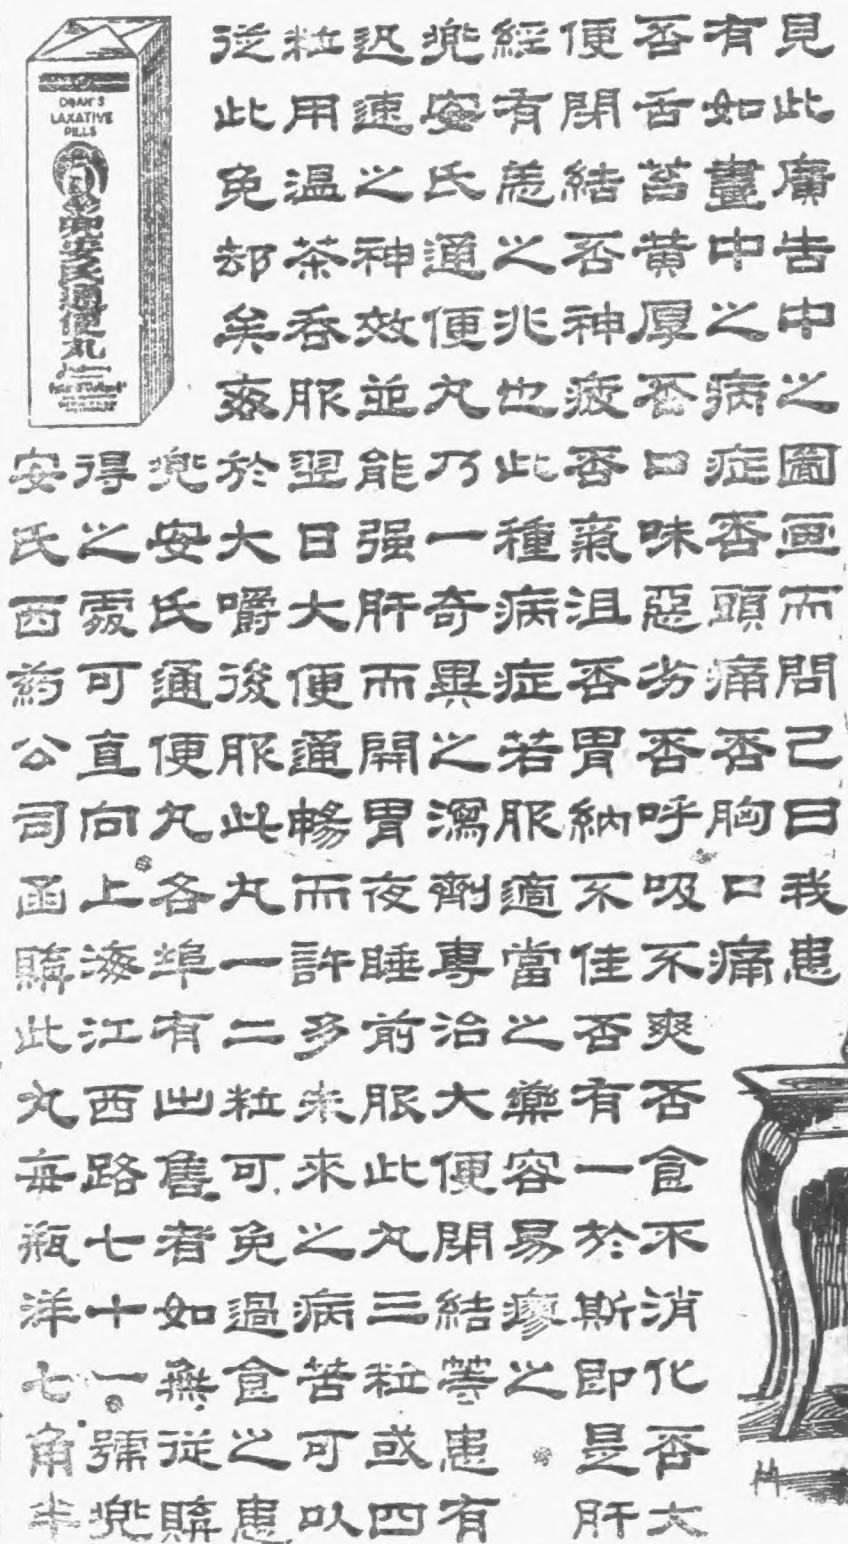 見此廣告中之圖画而問己曰我患
有如畫中之病症否頭痛否胸口痛
否舌苔黄厚否口味惡劣否呼吸不爽否食不消化否大
便閉結否神疲否氣沮否胃納不佳否有一於斯即是肝
經有恙之兆也此種病症若服適當之藥容易瘳之
兜安氏通便丸乃一奇異之瀉劑專治大便閉結等患有
迅速之神效並能强肝而開胃夜睡前服此丸三粒或四
粒用温茶吞服翌日大便通暢而許多未來之病苦可以
從此免却矣於大嚼後服此丸一二粒可免過食之患
兜安氏通便丸各埠有出售者如無從購
得之處可直向上海江西路七十一號兜
安氏西药公司函購此丸每瓶洋七角半
DOAN'S
LAXATIVE
PILLS
兜安氏通便丸